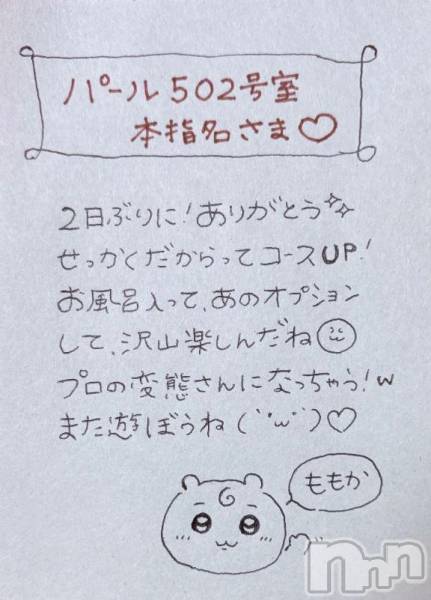 パール502号室
本指名さま♡
2日ぶりに!ありがとう✨
せっかくだからってコースUP!
お風呂入って、あのオプション
して、沢山楽しんだね☺
プロの変態さんになっちゃう!w
また遊ぼうね(˙'ω'˙)♡
ももか
nmn